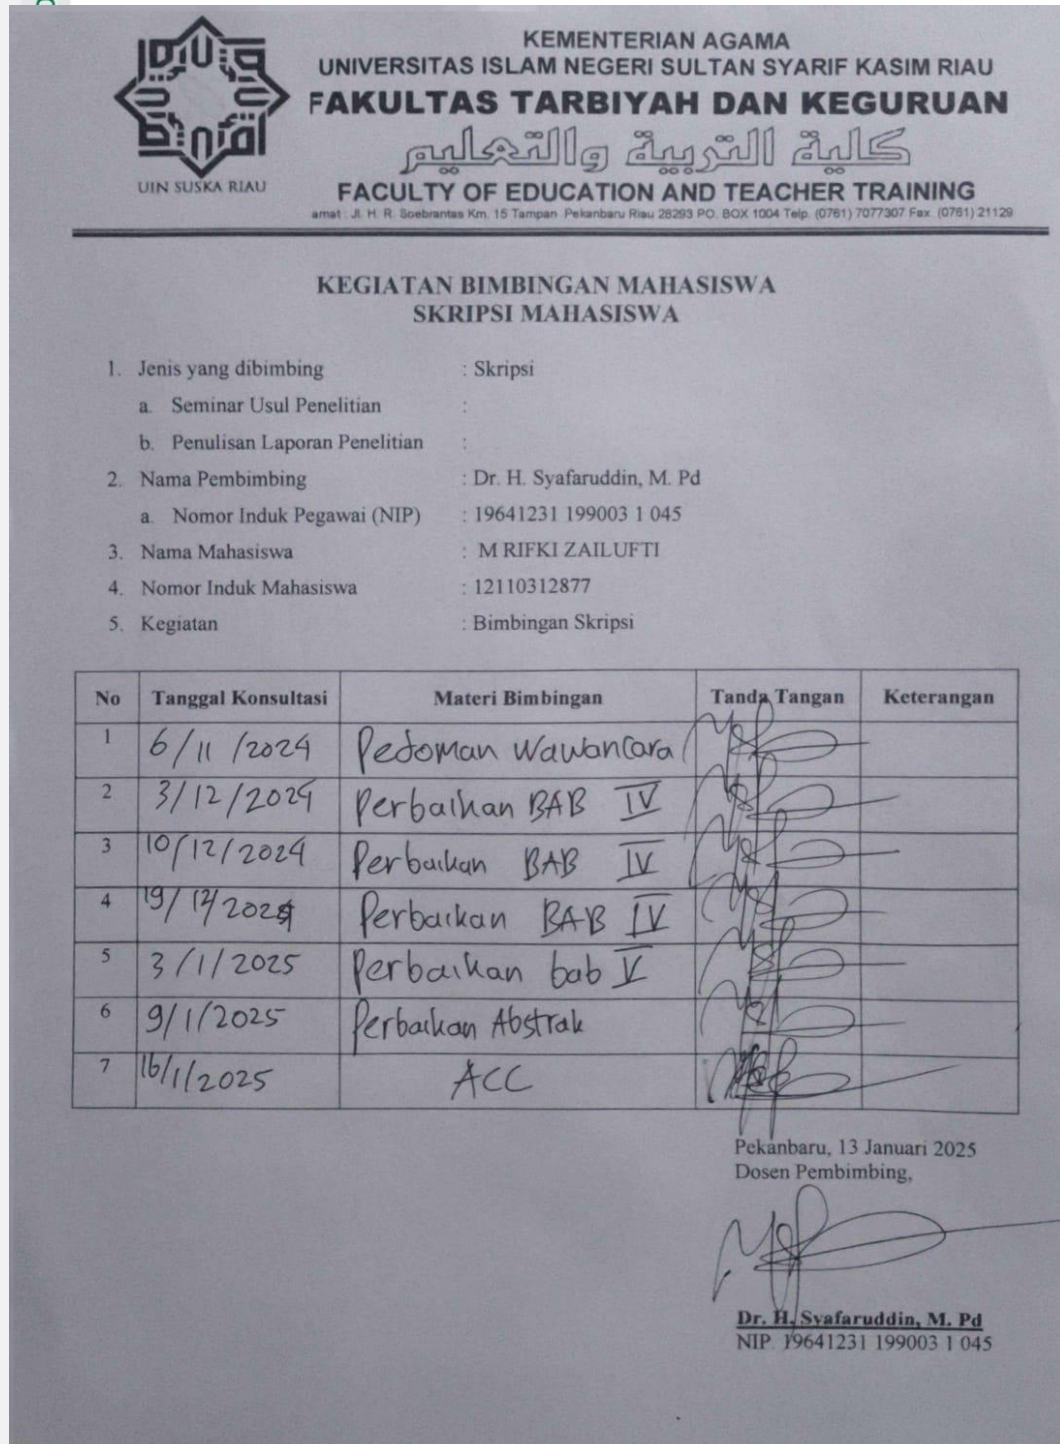 UIN SUSKA RIAU
KEMENTERIAN AGAMA
UNIVERSITAS ISLAM NEGERI SULTAN SYARIF KASIM RIAU
FAKULTAS TARBIYAH DAN KEGURUAN
كلية التربية والتعليم
FACULTY OF EDUCATION AND TEACHER TRAINING
amat : Jl. H. R. Soebrantas Km. 15 Tampan Pekanbaru Riau 28293 PO. BOX 1004 Telp. (0761) 7077307 Fax. (0761) 21129
KEGIATAN BIMBINGAN MAHASISWA
SKRIPSI MAHASISWA
1. Jenis yang dibimbing : Skripsi
a. Seminar Usul Penelitian :
b. Penulisan Laporan Penelitian :
2. Nama Pembimbing : Dr. H. Syafaruddin, M. Pd
a. Nomor Induk Pegawai (NIP) : 19641231 199003 1 045
3. Nama Mahasiswa : M RIFKI ZAILUFTI
4. Nomor Induk Mahasiswa : 12110312877
5. Kegiatan : Bimbingan Skripsi
No Tanggal Konsultasi Materi Bimbingan Tanda Tangan Keterangan
1 6/11/2024 Pedoman Wawancara
2 3/12/2024 Perbaikan BAB IV
3 10/12/2024 Perbaikan BAB IV
4 19/12/2024 Perbaikan BAB IV
5 3/1/2025 Perbaikan bab V
6 9/1/2025 Perbaikan Abstrak
7 16/1/2025 ACC
Pekanbaru, 13 Januari 2025
Dosen Pembimbing,
Dr. H. Syafaruddin, M. Pd
NIP. 19641231 199003 1 045